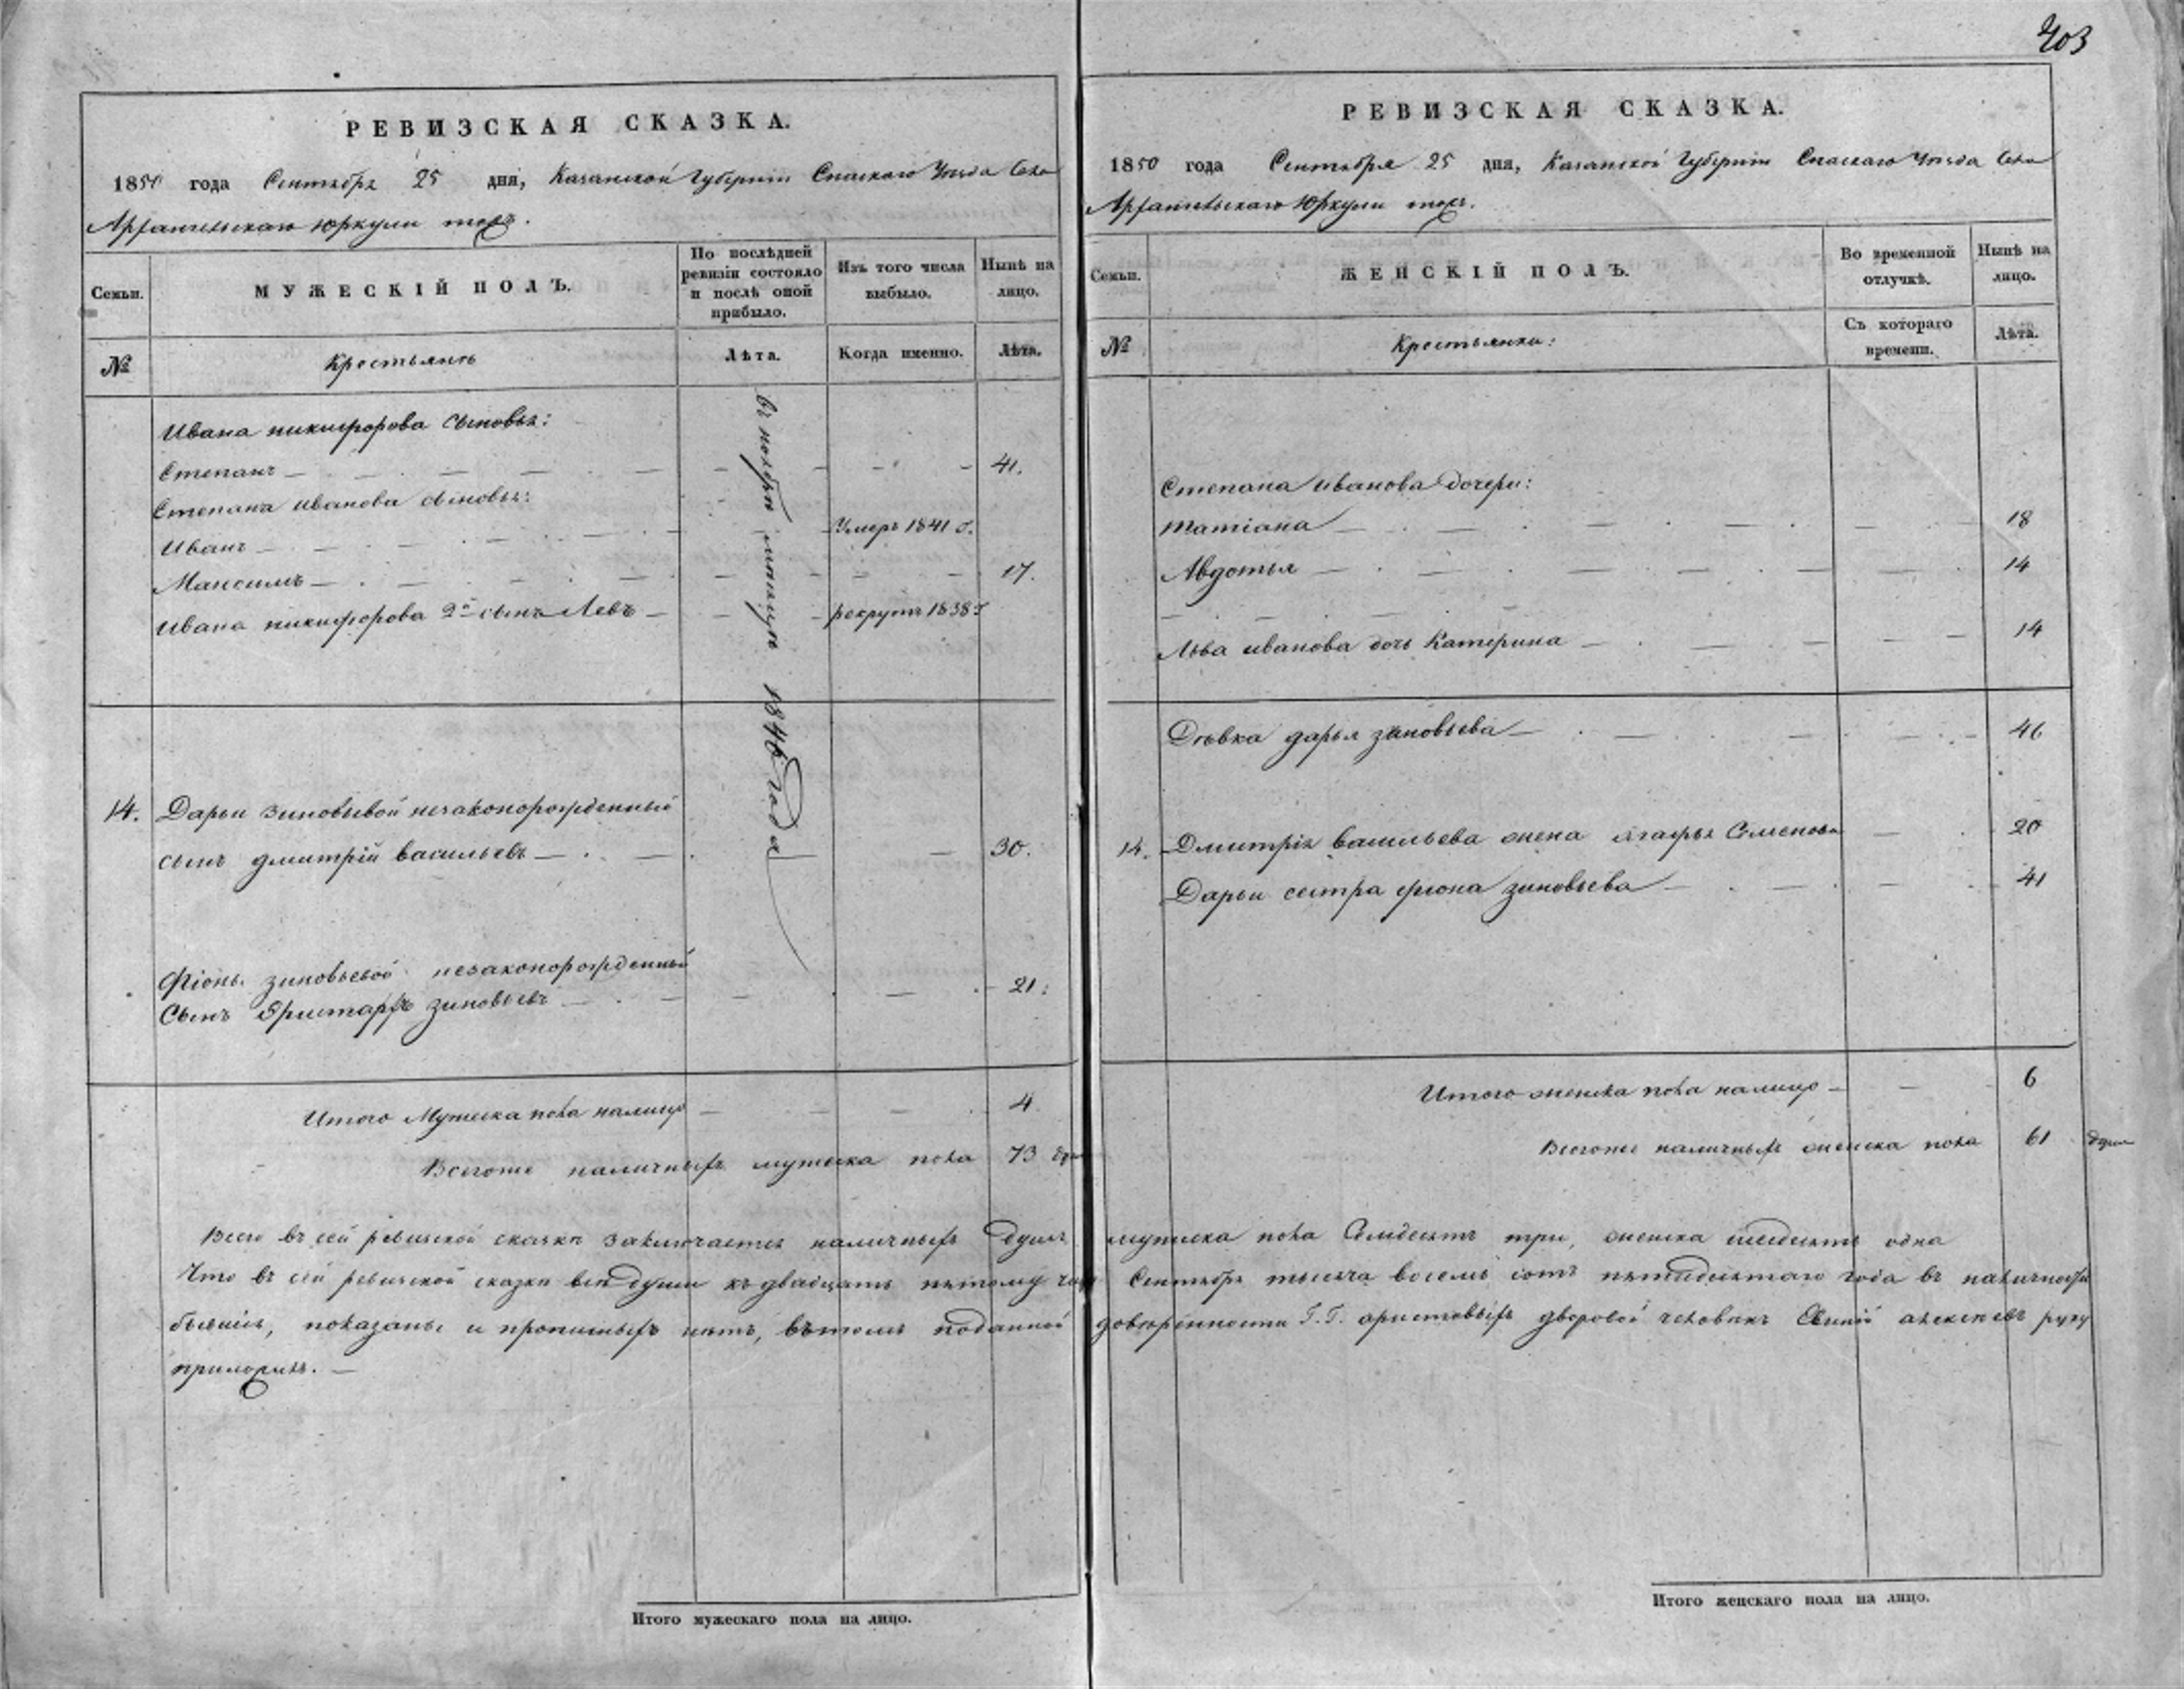 403
РЕВИЗСКАЯ СКАЗКА.
1850 года Сентября 25 дня, Казанской Губерніи Спаскаго Уѣзда Села
Архангельскаго Юркули тожъ.
Семьи.
МУЖЕСКІЙ ПОЛЪ.
По послѣдней ревизіи состояло и послѣ оной прибыло.
Изъ того числа выбыло.
Нынѣ на лицо.
№
Крестьянъ
Лѣта.
Когда именно.
Лѣта.
Ивана никифорова сыновья:
Степанъ — 41.
Степана иванова сыновья:
Иванъ — Умеръ 1841 г.
Максимъ — 17.
Ивана никифорова 2й сынъ Левъ — рекрутъ 1838 г
1846 года
14. Дарьи зиновьевой незаконорожденный
сынъ дмитрій васильевъ — 30.
Фіоны зиновьевой незаконорожденный
Сынъ Аристархъ зиновьевъ — 21.
Итого Мужеска пола налицо — 4
Всегоже наличныхъ мужеска пола 73 душ
РЕВИЗСКАЯ СКАЗКА.
1850 года Сентября 25 дня, Казанской Губерніи Спаскаго Уѣзда Села
Архангельскаго Юркули тожъ.
Семьи.
ЖЕНСКІЙ ПОЛЪ.
Во временной отлучкѣ.
Нынѣ на лицо.
№
Крестьянки:
Съ котораго времени.
Лѣта.
Степана иванова дочери:
татіана — 18
Авдотья — 14
Льва иванова дочь Катерина — 14
Дѣвка дарья зиновьева — 46
14. Дмитрія васильева жена агафья Семенова — 20
Дарьи сестра фіона зиновьева — 41
Итого женска пола налицо — 6
Всегоже наличныхъ женска пола 61 душа
Всего въ сей ревизской сказкѣ заключается наличныхъ душъ мужеска пола Семдесятъ три, женска шесдесятъ одна
Что въ сей ревизской сказки всѣ души къ двадцать пятому Сентября тысяча восемь сотъ пятидесятаго года въ наличности
бывшія, показаны и прописныхъ нѣтъ, вътомъ поданной довѣренности Г.Г. аристовыхъ дворовой человѣкъ алексѣевъ руку
приложилъ. —
Итого мужескаго пола на лицо.
Итого женскаго пола на лицо.